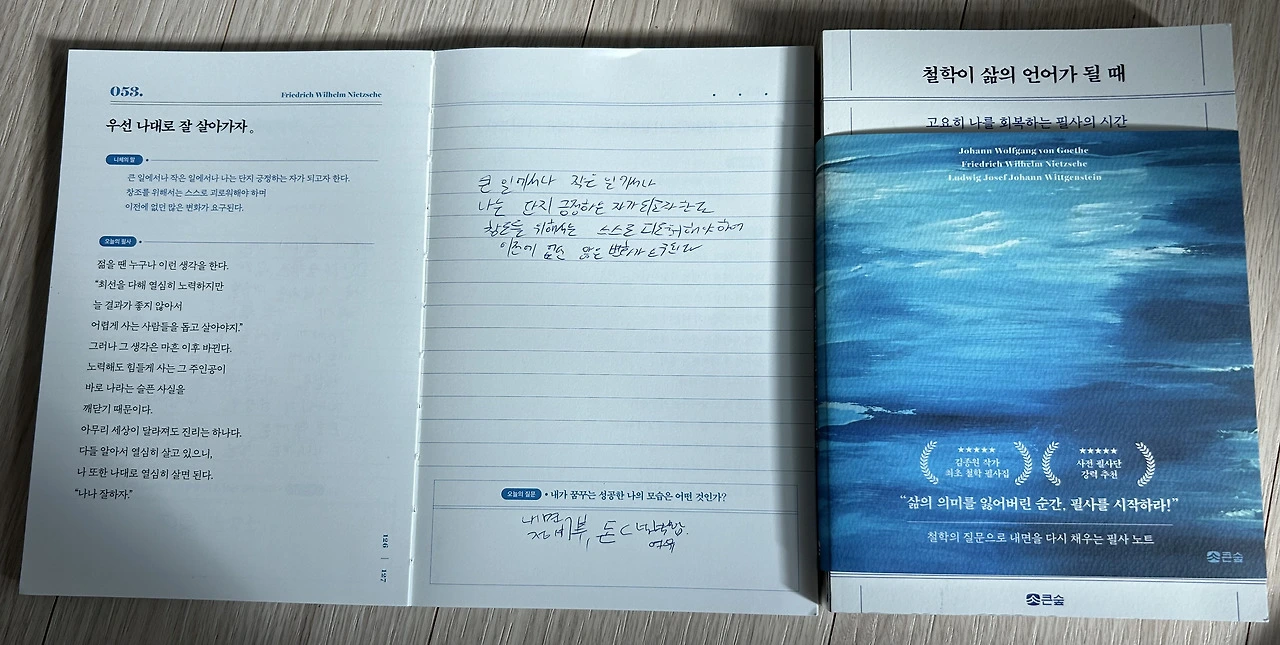 053.
Friedrich Wilhelm Nietzsche
우선 나대로 잘 살아가자.
니체의 말
큰 일에서나 작은 일에서나 나는 단지 긍정하는 자가 되고자 한다.
창조를 위해서는 스스로 괴로워해야 하며
이전에 없던 많은 변화가 요구된다.
오늘의 필사
젊을 땐 누구나 이런 생각을 한다.
“최선을 다해 열심히 노력하지만
늘 결과가 좋지 않아서
어렵게 사는 사람들을 돕고 살아야지.”
그러나 그 생각은 마흔 이후 바뀐다.
노력해도 힘들게 사는 그 주인공이
바로 나라는 슬픈 사실을
깨닫기 때문이다.
아무리 세상이 달라져도 진리는 하나다.
다들 알아서 열심히 살고 있으니,
나 또한 나대로 열심히 살면 된다.
“나나 잘하자.”
126 | 127
큰 일에서나 작은 일에서나
나는 단지 긍정하는 자가 되고자 한다
창조를 위해서는 스스로 해야 하며
이전에 없던 많은 변화가 요구된다
오늘의 질문 • 내가 꿈꾸는 성공한 나의 모습은 어떤 것인가?
내면
돈 <
철학이 삶의 언어가 될 때
고요히 나를 회복하는 필사의 시간
Johann Wolfgang von Goethe
Friedrich Wilhelm Nietzsche
Ludwig Josef Johann Wittgenstein
★★★★★
김종원 작가
최초 철학 필사집
★★★★★
사전 필사단
강력 추천
“삶의 의미를 잃어버린 순간, 필사를 시작하라!”
철학의 질문으로 내면을 다시 채우는 필사 노트
큰숲
큰숲